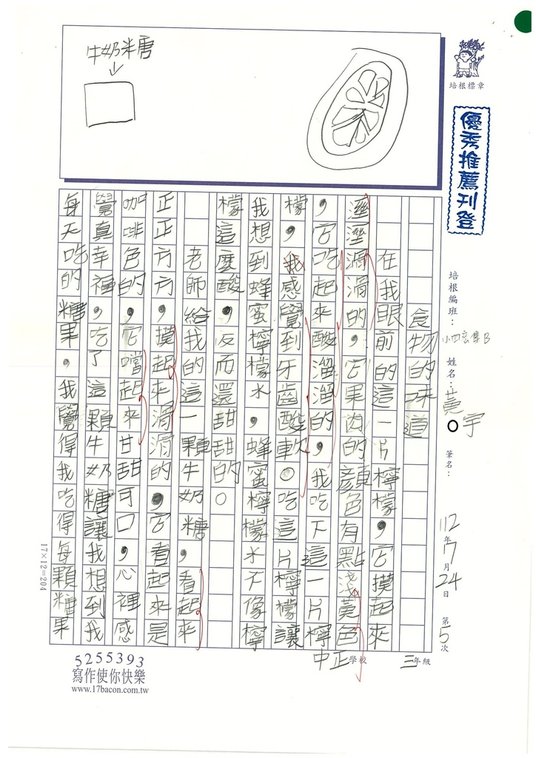 牛奶糖
培根標章
優秀推薦刊登
培根編班：小四言尊B
姓名：黃○宇
筆名：
112年7月24日
第5次
中正學校
三年級
食物的味道
在我眼前的這一片檸檬，它摸起來
溼溼滑滑的，它果肉的顏色有點淺黃色
，它吃起來酸溜溜的，我吃下這一片檸
檬，我感覺到牙齒酸軟。吃這片檸檬讓
我想到蜂蜜檸檬水，蜂蜜檸檬水不像檸
檬這麼酸，反而還甜甜的。
老師給我的這一顆牛奶糖，看起來
正正方方，摸起來滑滑的，它看起來是
咖啡色的，它嚐起來甘甜可口，心裡感
覺真幸福，吃了這顆牛奶糖讓我想到我
每天吃的糖果。我覺得我吃得每顆糖果
17×12=204
5255393
寫作使你快樂
www.17bacon.com.tw